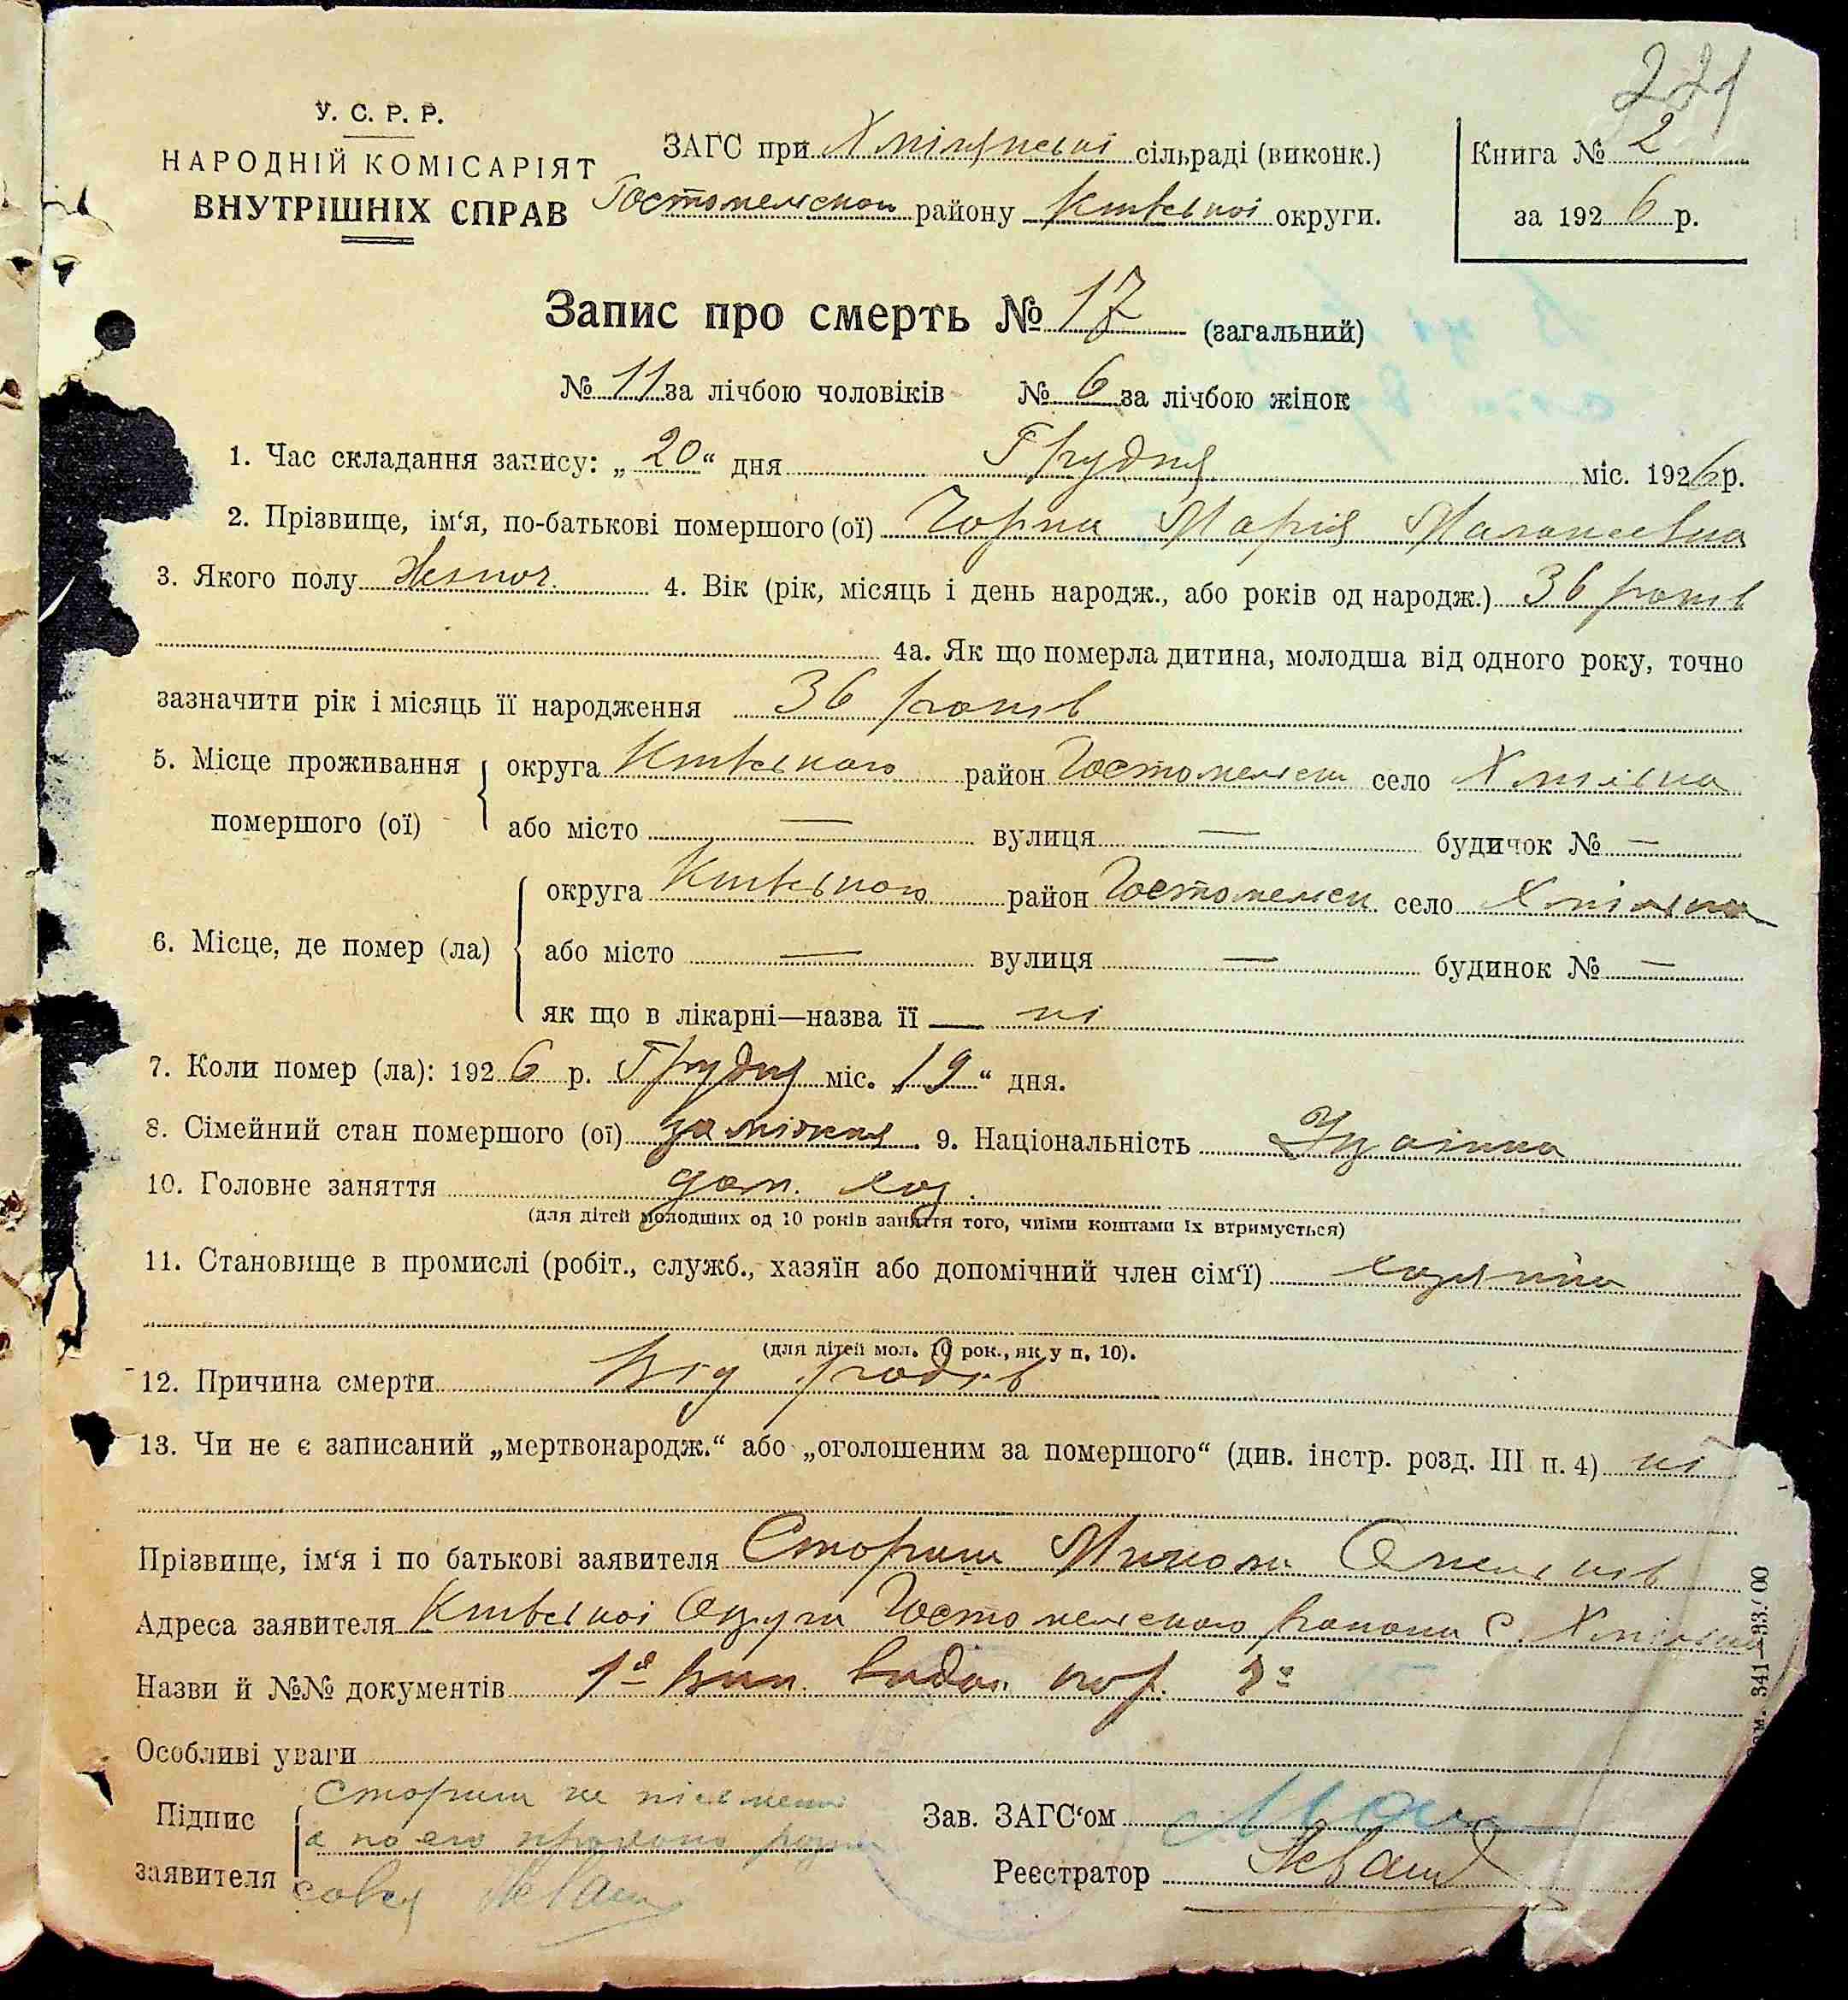 221
У. С. Р. Р.
НАРОДНІЙ КОМІСАРІЯТ
ВНУТРІШНІХ СПРАВ
ЗАГС при сільраді (виконк.)
Гостомельском району Київської округи.
Книга № 2
за 1926 р.
Запис про смерть № 17 (загальний)
№ 11 за лічбою чоловіків № 6 за лічбою жінок
1. Час складання запису: „20“ дня Грудня міс. 1926 р.
2. Прізвище, ім‘я, по-батькові помершого (ої) Чорна Марія
3. Якого полу 4. Вік (рік, місяць і день народж., або років од народж.) 36 років
4а. Як що померла дитина, молодша від одного року, точно
зазначити рік і місяць її народження 36 років
5. Місце проживання помершого (ої) округа Київського район Гостомельськ село Хмільна
або місто — вулиця — будичок № —
6. Місце, де помер (ла) округа Київського район Гостомельск село Хмільна
або місто — вулиця — будинок № —
як що в лікарні—назва її — ні
7. Коли помер (ла): 1926 р. Грудня міс. 19“ дня.
8. Сімейний стан помершого (ої) заміжня 9. Національність
10. Головне заняття дом. хоз.
(для дітей молодших од 10 років заняття того, чиїми коштами їх втримується)
11. Становище в промислі (робіт., служб., хазяїн або допомічний член сім‘ї)
(для дітей мол. 10 рок., як у п. 10).
12. Причина смерти від родів
13. Чи не є записаний „мертвонародж.“ або „оголошеним за помершого“ (див. інстр. розд. III п. 4) ні
Прізвище, ім‘я і по батькові заявителя Микола
Адреса заявителя Київської Округи Гостомельского району с. Хмільна
Назви й №№ документів
Особливі уваги
Підпис заявителя
Зав. ЗАГС‘ом
Реєстратор
341—33.000